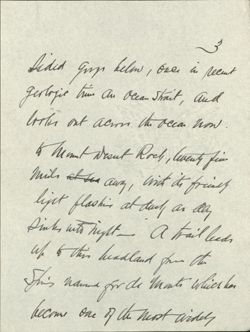 3
sided gorge below, once in recent
geologic time an ocean strait, and
looks out across the ocean now
to Mount Desert Rock, twenty five
miles at sea away, with its friendly
light flashing at dusk as day
sinks into night — A trail leads
up to this headland from the
Spring named for de Monts which has
become one of the most widely